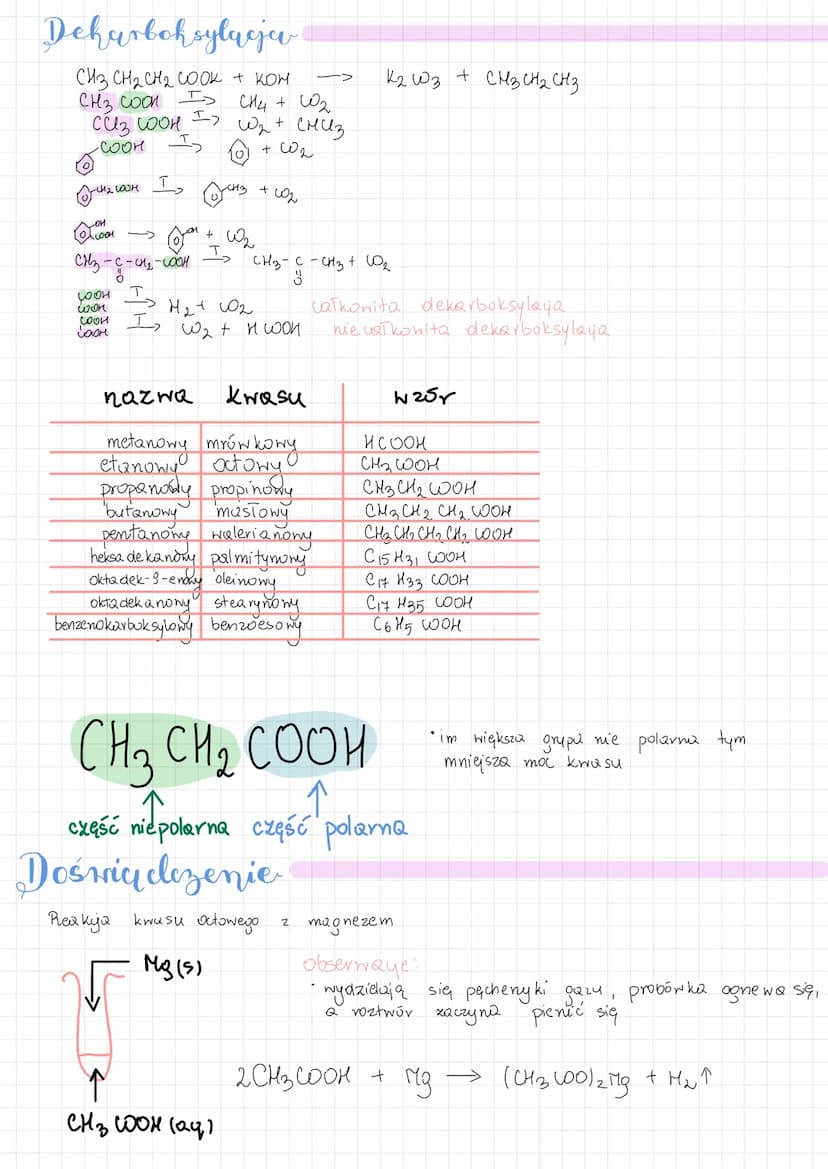 Dekarboksylacja
CH3CH2CH2COOK + KOH → K2CO3 + CH3CH2CH3
CH3COOH T→ CH4 + CO2
CCl3COOH T→ CO2 + CHCl3
COOH T→ + CO2
CH2COOH T→ CH3 + CO2
OH
COOH → OH + CO2
CH3-C-CH2-COOH T→ CH3-C-CH3 + CO2
O O
COOH T
COOH → H2 + CO2 całkowita dekarboksylacja
COOH T
COOH → CO2 + HCOOH niecałkowita dekarboksylacja
nazwa kwasu wzór
metanowy mrówkowy HCOOH
etanowy octowy CH3COOH
propanowy propinowy CH3CH2COOH
butanowy masłowy CH3CH2CH2COOH
pentanowy walerianowy CH3CH2CH2CH2COOH
heksadekanowy palmitynowy C15H31COOH
oktadek-9-enowy oleinowy C17H33COOH
oktadekanowy stearynowy C17H35COOH
benzenokarboksylowy benzoesowy C6H5COOH
CH3CH2COOH
• im większa grupa nie polarna tym
mniejsza moc kwasu
część niepolarna część polarna
Doświadczenie
Reakcja kwasu octowego z magnezem
Mg(s)
Obserwacje:
• wydzielają się pęcherzyki gazu, probówka ogrzewa się,
a roztwór zaczyna pienić się
2CH3COOH + Mg → (CH3COO)2Mg + H2↑
CH3COOH(aq)